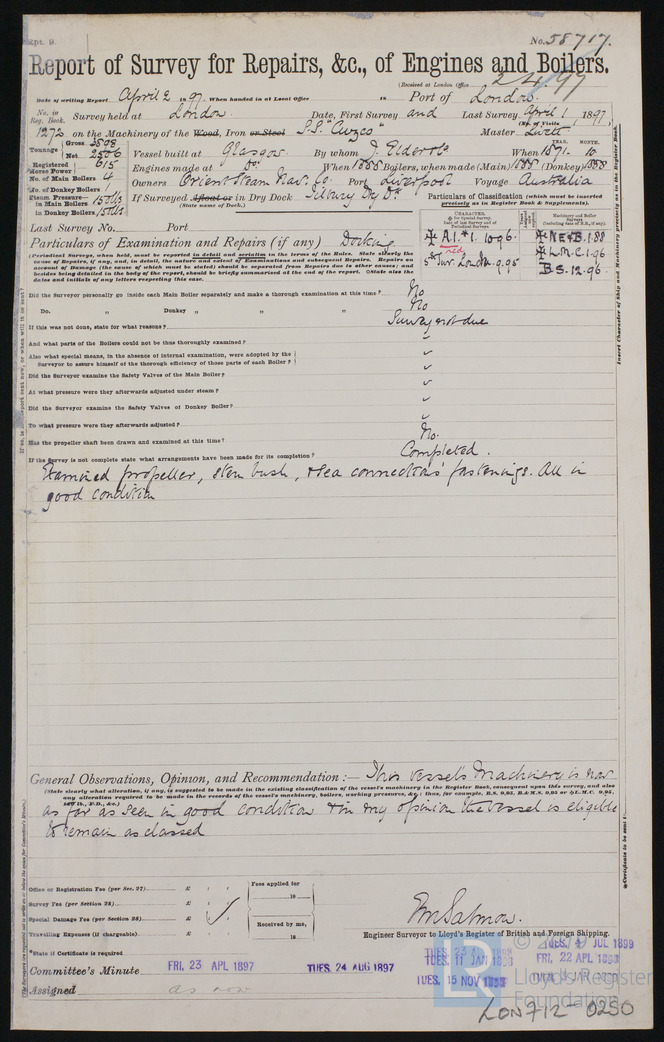 Rpt. 9.
No. 58717.
Report of Survey for Repairs, &c., of Engines and Boilers.
(Received at London Office 2/4/97
Date of writing Report April 2 1897. When handed in at Local Office 18 Port of London.
No. in Reg. Book. Survey held at London Date, First Survey and Last Survey April 1, 1897,
(No. of Visits
1272 on the Machinery of the Wood, Iron or Steel S.S. "Cuzco" Master
Tonnage Gross 3898 Net 2506
Vessel built at Glasgow By whom J. Elder & Co When 1871. 12
YEAR. MONTH.
Registered Horse Power 615
Engines made at Do When 1888 Boilers, when made (Main) 1888 (Donkey) 1888
No. of Main Boilers 4
No. of Donkey Boilers 1
Owners Orient Steam Nav. Co. Port Liverpool Voyage Australia
Steam Pressure— in Main Boilers 150 lbs
in Donkey Boilers
If Surveyed Afloat or in Dry Dock Tilbury Dry Dk
(State name of Dock.)
Particulars of Classification (which must be inserted precisely as in Register Book & Supplements).
Last Survey No. Port
Particulars of Examination and Repairs (if any) Docking
A.1. 10.96.
red
Sur. London. 9.95
NE&B. 1.88
L.M.C. 1.96
B.S. 12.96.
(Periodical Surveys, when held, must be reported in detail and seriatim in the terms of the Rules. State clearly the
cause of Repairs, if any, and, in detail, the nature and extent of Examinations and subsequent Repairs. Repairs on
account of Damage (the cause of which must be stated) should be separated from Repairs due to other causes; and
besides being detailed in the body of the report, should be briefly summarised at the end of the report. State also the
dates and initials of any letters respecting this case.
Did the Surveyor personally go inside each Main Boiler separately and make a thorough examination at this time? No
Do. „ Donkey „ „ „ No
If this was not done, state for what reasons? Survey not due
And what parts of the Boilers could not be thus thoroughly examined?
Also what special means, in the absence of internal examination, were adopted by the
Surveyor to assure himself of the thorough efficiency of those parts of each Boiler?
Did the Surveyor examine the Safety Valves of the Main Boiler?
At what pressure were they afterwards adjusted under steam?
Did the Surveyor examine the Safety Valves of Donkey Boiler?
To what pressure were they afterwards adjusted?
Has the propeller shaft been drawn and examined at this time? No.
If the Survey is not complete state what arrangements have been made for its completion? Completed.
Examined propeller, stern bush, & sea connections' fastenings. All in
good condition
Insert Character of Ship and Machinery precisely as in the Register Book.
General Observations, Opinion, and Recommendation:— This vessel's Machinery is now
(State clearly what alteration, if any, is suggested to be made in the existing classification of the vessel's machinery in the Register Book, consequent upon this survey, and also
any alteration required to be made in the records of the vessel's machinery, boilers, working pressures, &c.; thus, for example, B.S. 9,95, B.&M.S. 9,95 or L.M.C. 9,95,
as far as seen in good condition & in my opinion the vessel is eligible
to remain as classed
Office or Registration Fee (per Sec. 27) £
Survey Fee (per Section 28) £
Special Damage Fee (per Section 28) £
Travelling Expenses (if chargeable) £
Fees applied for
18
Received by me,
18
Wm Salmon.
Engineer Surveyor to Lloyd's Register of British and Foreign Shipping.
*State if Certificate is required
Committee's Minute FRI. 23 APL 1897
TUES. 24 AUG 1897
TUES. 11 JAN 1898
TUES. 15 NOV 1898
TUES. 4 JUL 1899
FRI. 22 APL 1898
Assigned as now
© 2019
LR
Lloyd's Register
Foundation
LON712 0250